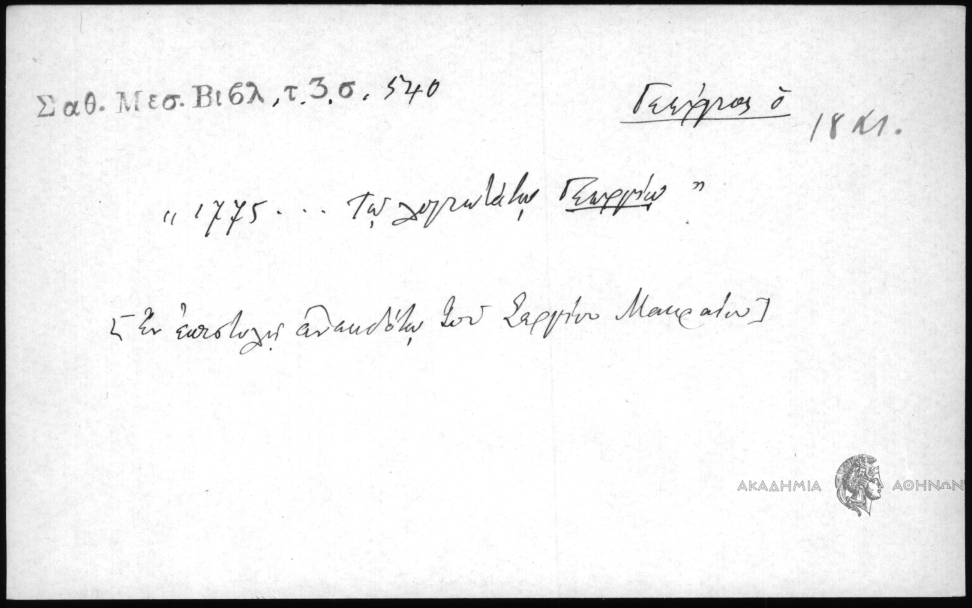 Σαθ. Μεσ. Βιβλ, τ. 3, σ. 540
Γεώργιος ὁ
18
" 1775 ... τῷ λογιωτάτῳ Γεωργίῳ "
[Ἐν ἐπιστολῇ ἀνεκδότῳ τοῦ Σεργίου Μακραίου]
ΑΚΑΔΗΜΙΑ ΑΘΗΝΩΝ